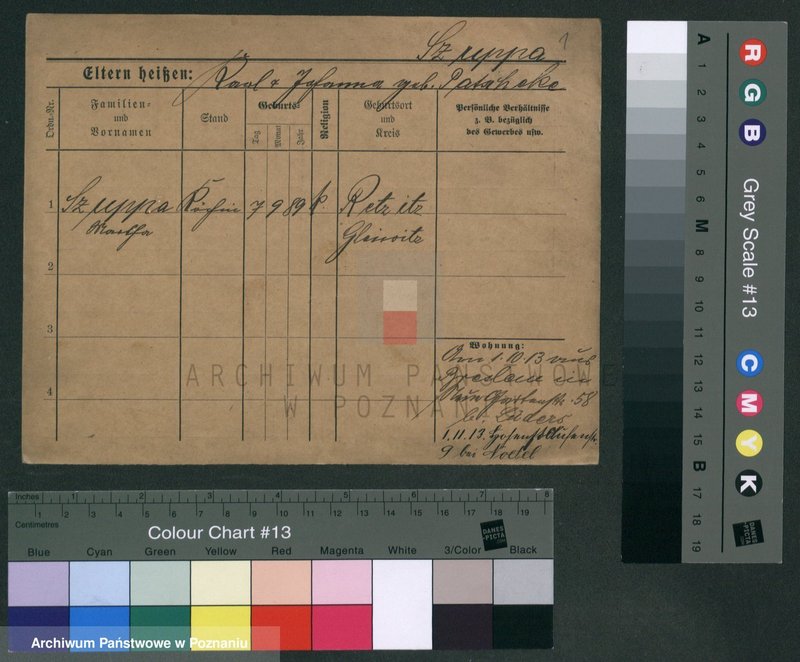 Szuppa
Eltern heißen: Karl & Johanna geb.
Ordn.-Nr.
Familien-
und
Vornamen
Stand
Geburts-
Tag
Monat
Jahr
Religion
Geburtsort
und
Kreis
Persönliche Verhältnisse
z. B. bezüglich
des Gewerbes usw.
1 Szuppa Köchin 7 9 89 k. Retzitz
Martha Gleiwitz
2
3
4
Wohnung:
Am 1.10.13 aus
Breslau in
58
bei Lüders
1.11.13.
9 bei
ARCHIWUM PAŃSTWOWE
W POZNANIU
A 1 2 3 4 5 6 M 8 9 10 11 12 13 14 15 B 17 18 19
R G B
Grey Scale #13
C M Y K
DANES
-PICTA
Inches 1 2 3 4 5 6 7 8
Centimetres 1 2 3 4 5 6 7 8 9 10 11 12 13 14 15 16 17 18 19
Colour Chart #13
DANES
-PICTA
Blue Cyan Green Yellow Red Magenta White 3/Color Black
Archiwum Państwowe w Poznaniu